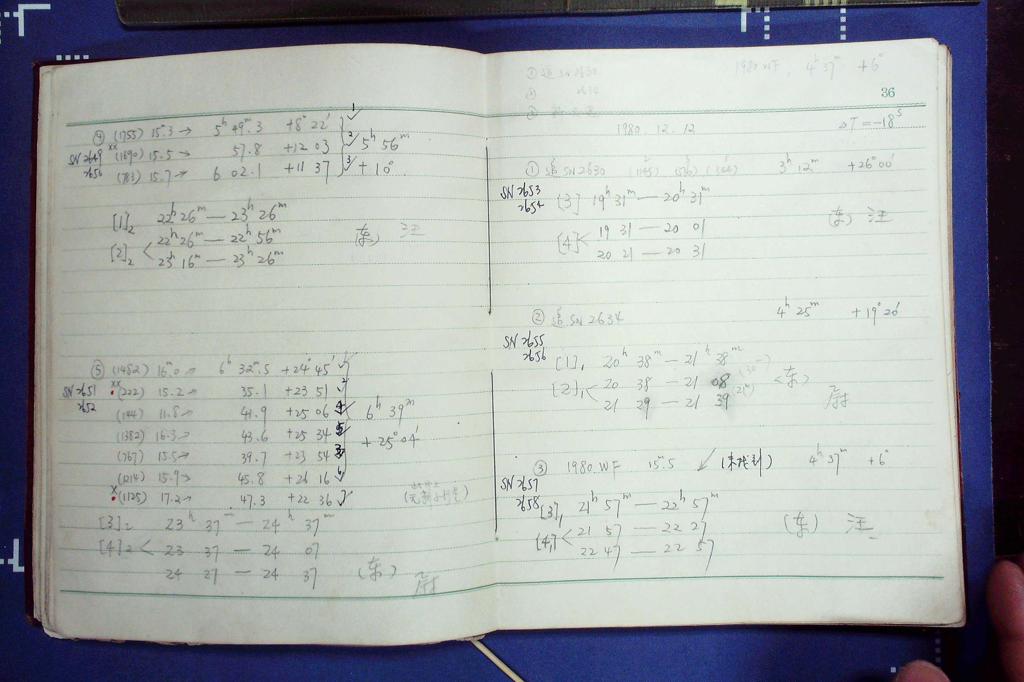 ④ (1755) 15.3 → 5ʰ 49ᵐ.3 +8° 22′ 1✓
SN 2649 ×× (1690) 15.5 → 57.8 +12 03 2✓ 5ʰ 56ᵐ
2650 (783) 15.7 → 6 02.1 +11 37 3✓ +10°
[1]₂ 22ʰ 26ᵐ — 23ʰ 26ᵐ
[2]₂ 22ʰ 26ᵐ — 22ʰ 56ᵐ (东) 汪
23ʰ 16ᵐ — 23ʰ 26ᵐ
⑤ (1482) 16ᵐ.0 → 6ʰ 32ᵐ.5 +24° 45′
SN 2651 ×× (222) 15.2 → 35.1 +23 51 2
2652 (144) 11.8 → 41.9 +25 06 4 6ʰ 39ᵐ
(1382) 16.3 → 43.6 +25 34 5 +25° 04′
(767) 15.5 → 39.7 +23 54 3
(1214) 15.9 → 45.8 +26 16 6
× (1125) 17.2 → 47.3 +22 36 ✓ (无新小行星)
[3]₂ 23ʰ 37ᵐ — 24ʰ 37ᵐ
[4]₂ 23 37 — 24 07
24 27 — 24 37 (东) 尉
① 追 SN 2630 1980 WF, 4ʰ 37ᵐ +6°
36
1980. 12. 12 ΔT = −18ˢ
① 追 SN 2630 3ʰ 12ᵐ +26° 00′
SN 2653
2654 [3] 19ʰ 31ᵐ — 20ʰ 31ᵐ (东) 汪
[4] 19 31 — 20 01
20 21 — 20 31
② 追 SN 2634 4ʰ 25ᵐ +19° 20′
SN 2655
2656 [1]₁ 20ʰ 38ᵐ — 21ʰ 38ᵐ
[2]₁ 20 38 — 21 08 (东)
21 29 — 21 39 尉
③ 1980 WF 15ᵐ.5 ✓ (未找到) 4ʰ 37ᵐ +6°
SN 2657
2658 [3]₁ 21ʰ 57ᵐ — 22ʰ 57ᵐ
[4]₁ 21 57 — 22 27 (东) 汪
22 47 — 22 57